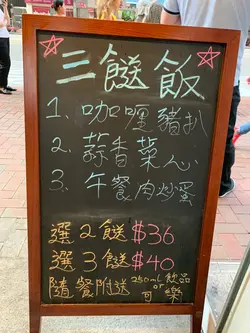 三餸飯
1. 咖喱豬扒
2. 蒜香菜心
3. 午餐肉炒蛋
選2餸$36
選3餸$40
隨餐附送 250ml飲品
or
可樂